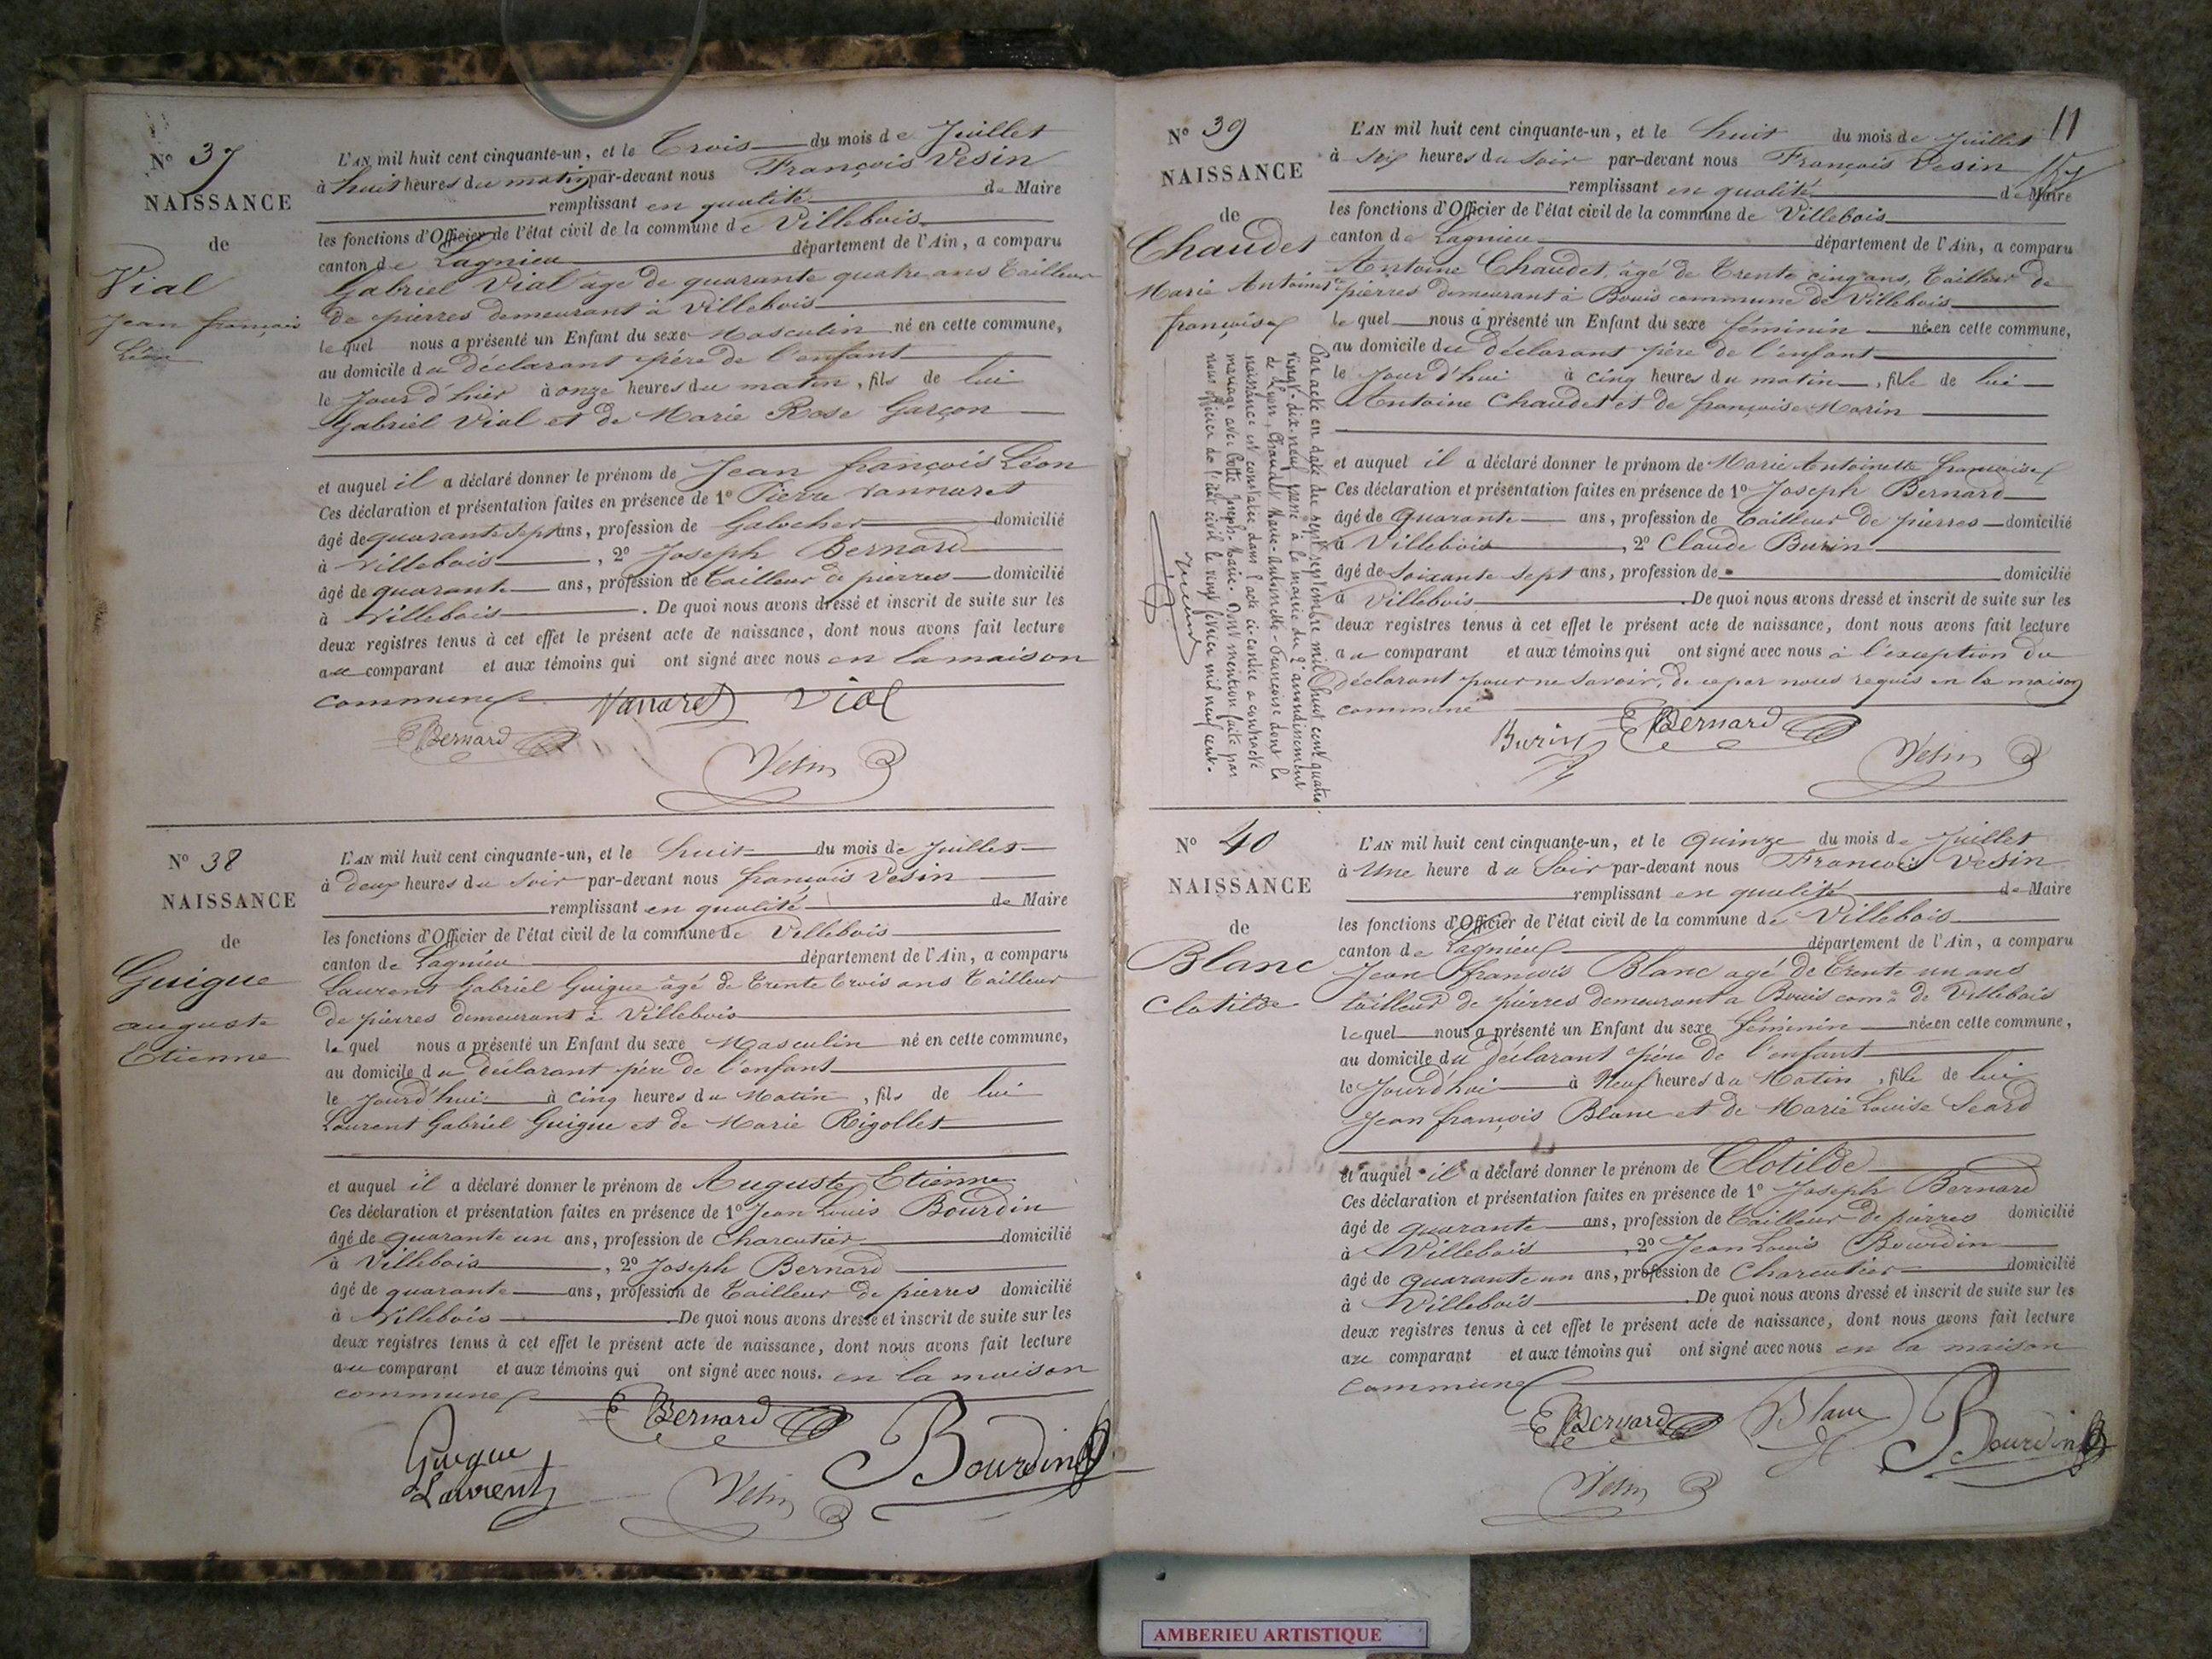 N° 37
NAISSANCE
de
Vial
Jean françois
Léon
L'AN mil huit cent cinquante-un, et le Trois du mois de Juillet
à huit heures du matin par-devant nous François Vesin
remplissant en qualité de Maire
les fonctions d'Officier de l'état civil de la commune de Villebois
canton de Lagnieu département de l'Ain, a comparu
Gabriel Vial âgé de quarante quatre ans Tailleur
de pierres demeurant à Villebois
lequel nous a présenté un Enfant du sexe Masculin né en cette commune,
au domicile du déclarant père de l'enfant
le Jour d'hier à onze heures du matin, fils de lui
Gabriel Vial et de Marie Rose Garçon
et auquel il a déclaré donner le prénom de Jean françois Léon
Ces déclaration et présentation faites en présence de 1° Pierre Vannaret
âgé de quarante sept ans, profession de Galocher domicilié
à Villebois, 2° Joseph Bernard
âgé de quarante ans, profession de Tailleur de pierres domicilié
à Villebois. De quoi nous avons dressé et inscrit de suite sur les
deux registres tenus à cet effet le présent acte de naissance, dont nous avons fait lecture
au comparant et aux témoins qui ont signé avec nous en la maison
commune
Vanaret Vial
Bernard
Vesin
N° 38
NAISSANCE
de
Guigue
auguste
Etienne
L'AN mil huit cent cinquante-un, et le huit du mois de Juillet
à Deux heures du Soir par-devant nous françois Vesin
remplissant en qualité de Maire
les fonctions d'Officier de l'état civil de la commune de Villebois
canton de Lagnieu département de l'Ain, a comparu
Laurent Gabriel Guigue âgé de Trente Trois ans Tailleur
de pierres demeurant à Villebois
lequel nous a présenté un Enfant du sexe Masculin né en cette commune,
au domicile du déclarant père de l'enfant
le Jourd'hui à cinq heures du Matin, fils de lui
Laurent Gabriel Guigue et de Marie Rigollet
et auquel il a déclaré donner le prénom de Auguste Etienne
Ces déclaration et présentation faites en présence de 1° Jean Louis Bourdin
âgé de quarante un ans, profession de Charcutier domicilié
à Villebois, 2° Joseph Bernard
âgé de quarante ans, profession de Tailleur de pierres domicilié
à Villebois. De quoi nous avons dressé et inscrit de suite sur les
deux registres tenus à cet effet le présent acte de naissance, dont nous avons fait lecture
au comparant et aux témoins qui ont signé avec nous. en la maison
commune
Bernard
Guigue Bourdin
Laurent
Vesin
11
N° 39
NAISSANCE
de
Chaudet
Marie Antoinette
françoise
L'AN mil huit cent cinquante-un, et le huit du mois de Juillet
à Six heures du Soir par-devant nous François Vesin
remplissant en qualité de Maire
les fonctions d'Officier de l'état civil de la commune de Villebois
canton de Lagnieu département de l'Ain, a comparu
Antoine Chaudet, âgé de Trente cinq ans, Tailleur de
pierres demeurant à Bouis commune de Villebois
lequel nous a présenté un Enfant du sexe féminin née en cette commune,
au domicile du déclarant père de l'enfant
le Jour d'hui à cinq heures du matin, fille de lui
Antoine Chaudet et de françoise Marin
et auquel il a déclaré donner le prénom de Marie Antoinette françoise
Ces déclaration et présentation faites en présence de 1° Joseph Bernard
âgé de Quarante ans, profession de Tailleur de pierres domicilié
à Villebois, 2° Claude Burin
âgé de Soixante sept ans, profession de domicilié
à Villebois. De quoi nous avons dressé et inscrit de suite sur les
deux registres tenus à cet effet le présent acte de naissance, dont nous avons fait lecture
au comparant et aux témoins qui ont signé avec nous à l'exception du
déclarant pour ne savoir, de ce par nous requis en la maison
commune
Burin Bernard
Vesin
Par acte en date du sept septembre mil huit cent quatre
vingt-dix-neuf passé à la mairie du 2e arrondissement
de Lyon, Chaudet Marie-Antoinette-françoise dont la
naissance est constatée dans l'acte ci-contre a contracté
mariage avec Joseph-Marie. Dont mention faite par
nous officier de l'état civil le vingt février mil neuf cent.
N° 40
NAISSANCE
de
Blanc
Clotilde
L'AN mil huit cent cinquante-un, et le Quinze du mois de Juillet
à Une heure du Soir par-devant nous François Vesin
remplissant en qualité de Maire
les fonctions d'Officier de l'état civil de la commune de Villebois
canton de Lagnieu département de l'Ain, a comparu
Jean françois Blanc agé de Trente un ans
tailleur de pierres demeurant a Bouis come de Villebois
lequel nous a présenté un Enfant du sexe féminin née en cette commune,
au domicile du déclarant père de l'enfant
le Jourd'hui à Neuf heures du Matin, fille de lui
Jean françois Blanc et de Marie Louise Seard
et auquel il a déclaré donner le prénom de Clotilde
Ces déclaration et présentation faites en présence de 1° Joseph Bernard
âgé de quarante ans, profession de Tailleur de pierres domicilié
à Villebois, 2° Jean Louis Bourdin
âgé de quarante un ans, profession de Charcutier domicilié
à Villebois. De quoi nous avons dressé et inscrit de suite sur les
deux registres tenus à cet effet le présent acte de naissance, dont nous avons fait lecture
au comparant et aux témoins qui ont signé avec nous en la maison
commune
Bernard Blanc Bourdin
Vesin
AMBERIEU ARTISTIQUE